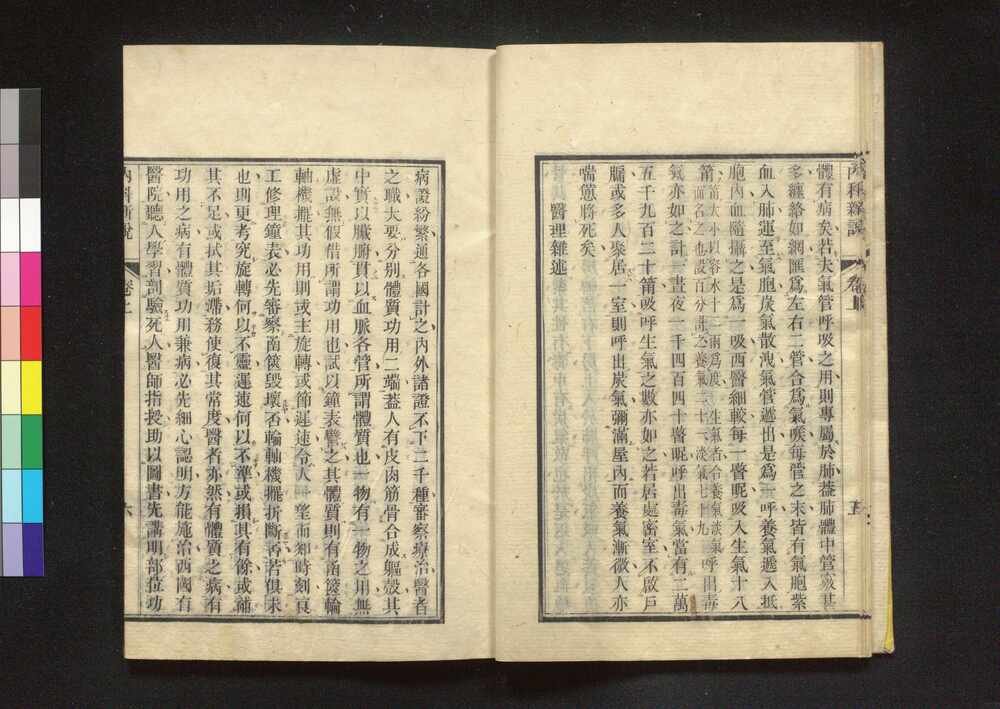 內科新說 卷上 五
體有病矣若夫氣管呼吸之用則專屬於肺蓋肺體中管竅甚
多纏絡如網匯爲左右二管合爲氣喉每管之末皆有氣胞紫
血入肺運至氣胞炭氣散洩氣管遞出是爲一呼養氣遞入抵
胞內血隨攝之是爲一吸西醫細較每一瞥呢吸入生氣十八
箭 生氣者合養氣淡氣 呼出毒
氣亦如之計一晝夜一千四百四十瞥呢呼出毒氣當有二萬
五千九百二十箭吸呼生氣之數亦如之若居處密室不啟戶
牖或多人聚居一室則呼出炭氣彌滿屋內而養氣漸微人亦
喘憊將死矣
醫理雜述
病證紛繁通各國計之內外諸證不下二千種審察療治醫者
之職大要分別體質功用二端蓋人有皮肉筋骨合成軀殼其
中實以臟腑貫以血脈各管所謂體質也一物有一物之用無
虛設無假借所謂功用也試以鐘表譬之其體質則有函篋輪
軸機擺其功用則或主旋轉或節遲速令人一望而知時刻良
工修理鐘表必先審察函篋毀壞否輪軸機擺折斷否若俱未
也則更考究旋轉何以不靈遲速何以不準或損其有餘或補
其不足或拭其垢滯務使復其常度醫者亦然有體質之病有
功用之病有體質功用兼病必先細心認明方能施治西國有
醫院聽人學習剖驗死人醫師指授助以圖書先講明部位功
內科新說 卷上 六